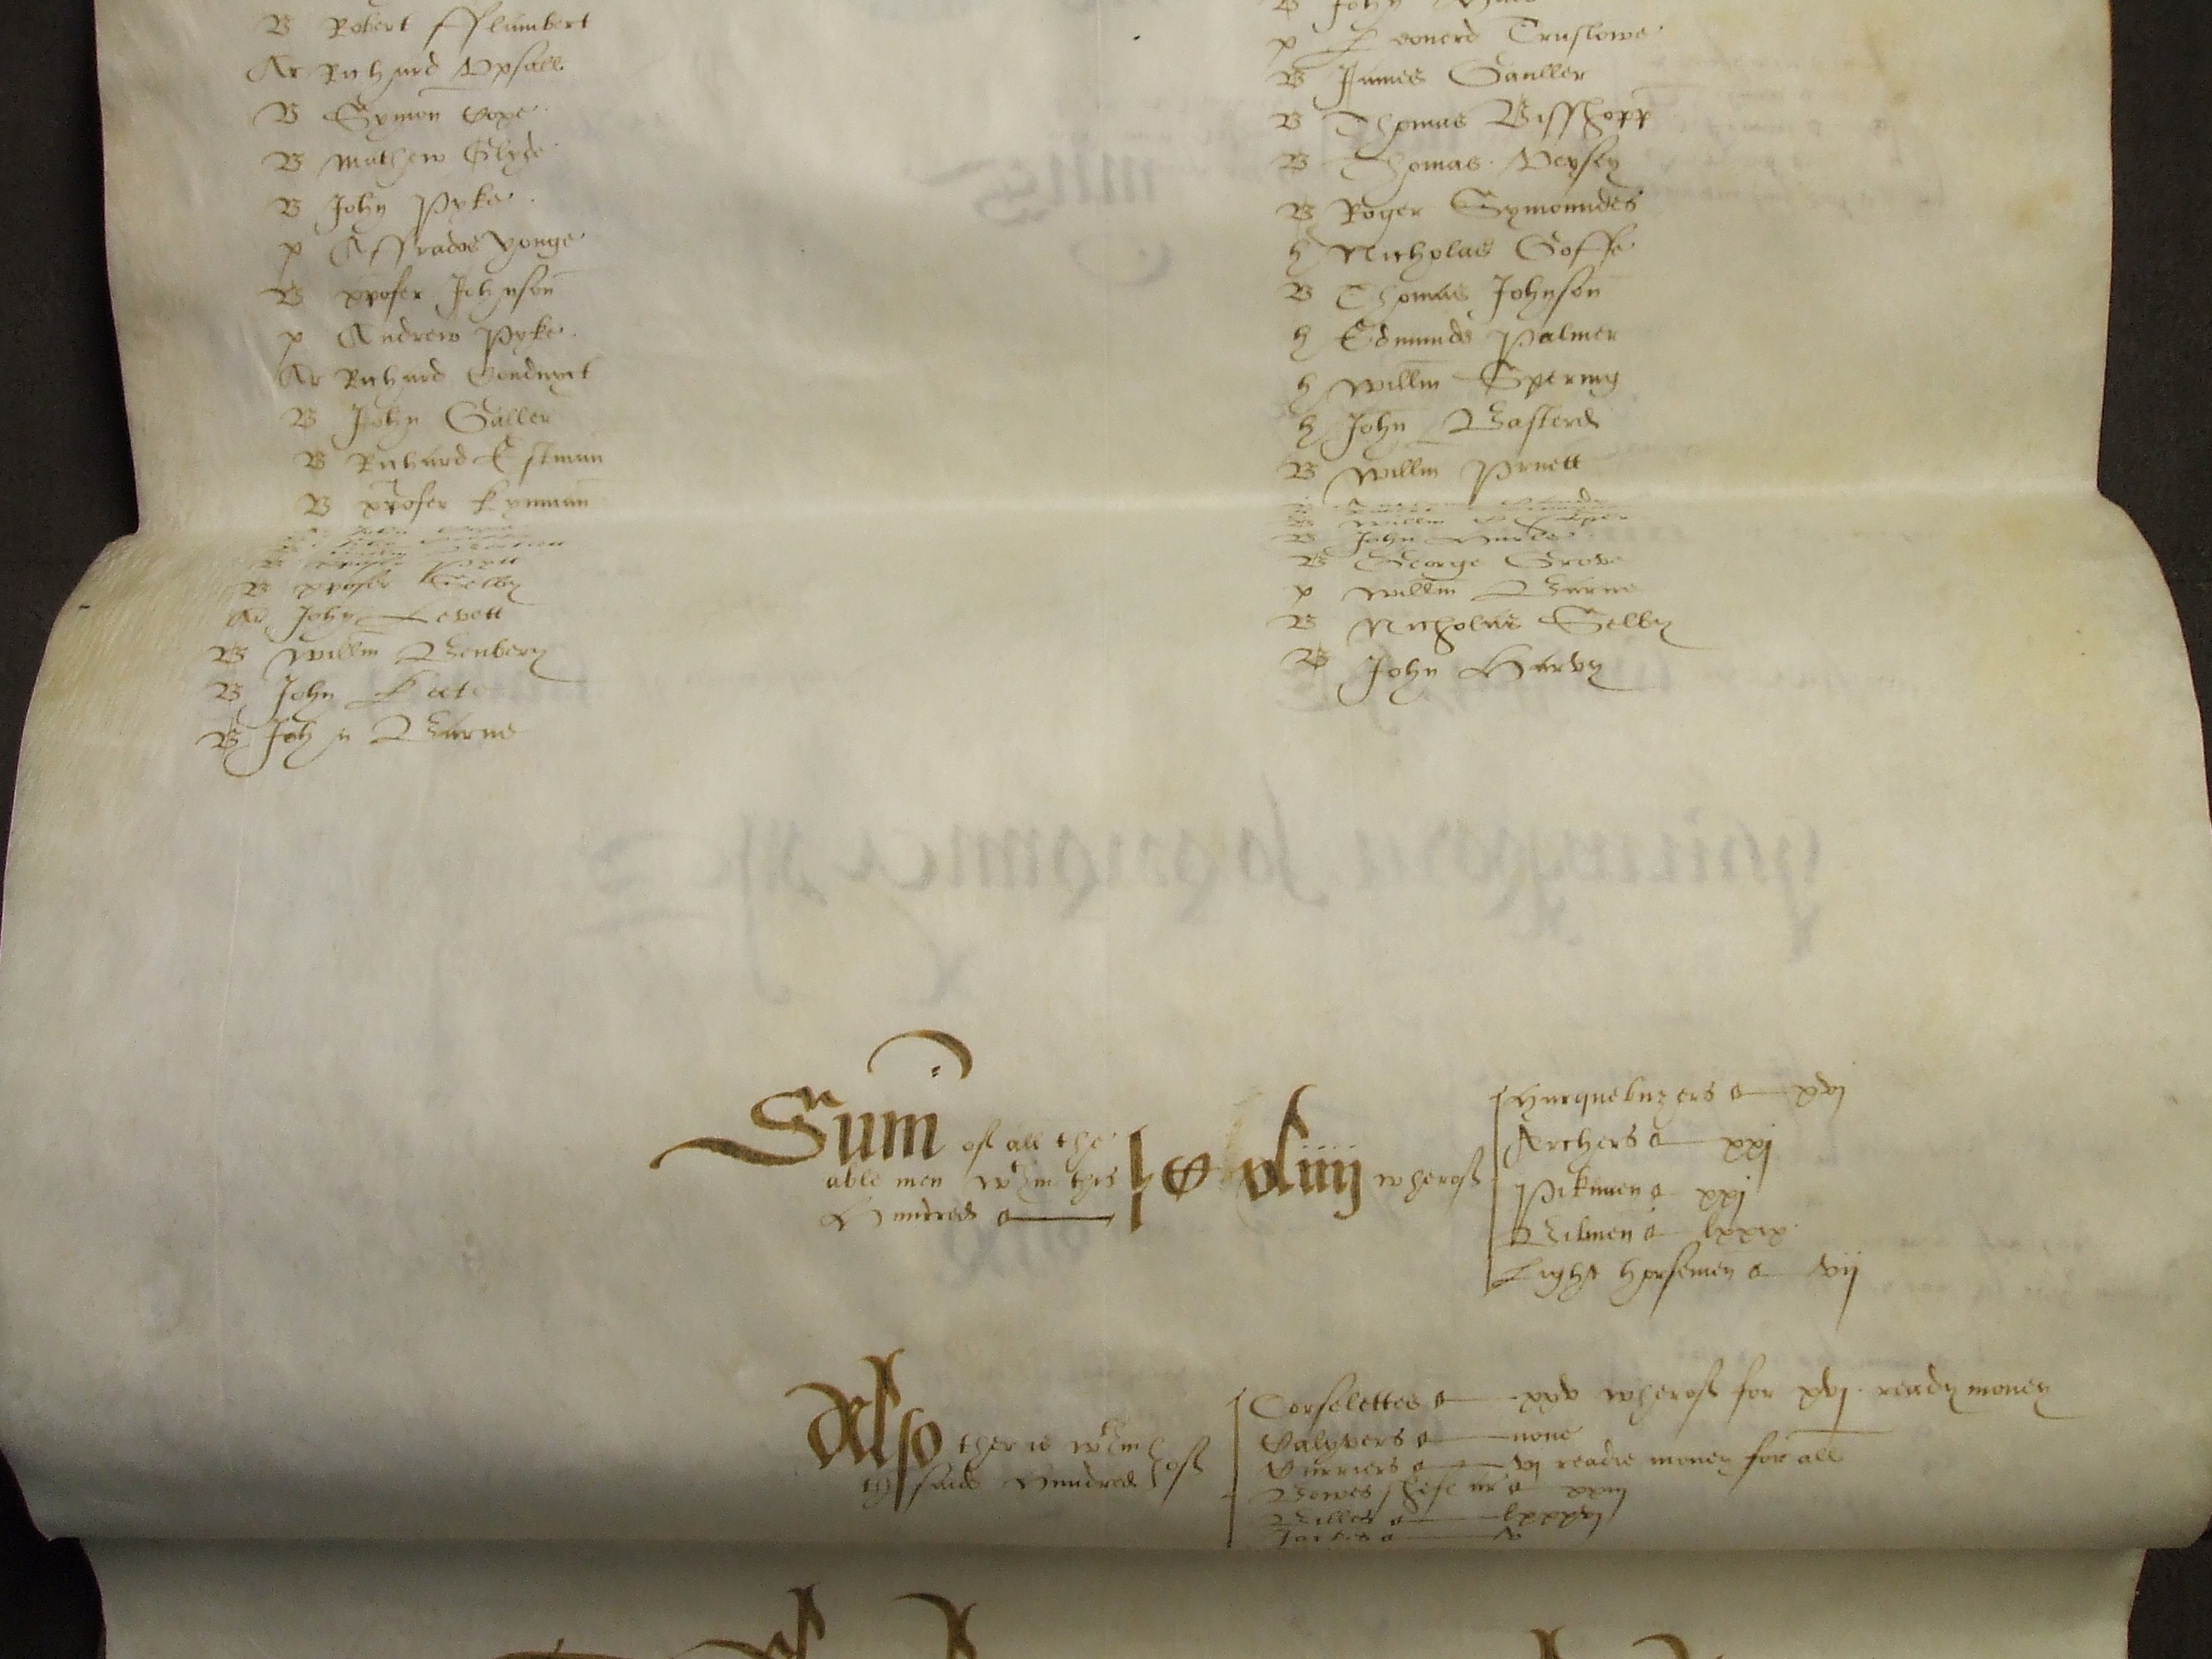 B Robert fflambert
Ar Richard Vpsall
B Symon Cope
B Mathew Glyde
B John Pyke
p Affradoe Yonge
B xpofer Johnson
p Andrew Pyke
Ar Richard Conduyt
B John Saller
B Richard Estman
B xpofer Kynman
B xpofer Selby
Ar John Levett
B Willm Benbery
B John Kete
B John Barne
B John
p Leonerd Truslowe
B James Sauller
B Thomas Bisshopp
B Thomas Veysey
B Roger Symonndes
h Nicholas Goffe
B Thomas Johnson
h Edmunde Palmer
h Willm Spering
h John Basterd
B Willm Pruett
B Willm
B John
B George Grove
p Willm Barne
B Nicholas Selby
B John Harvy
Sum of all the
able men wthin this
Hundred
C xliiij wherof
Harquebuzers xvj
Archers xxj
Pikmen xxj
Bilmen lxxix
Light horsemen vij
Also ther is wthin
the saide Hundred of
Corselettes xxv wherof for xvj ready money
Calyvers none
Curriers vj readie money for all
Bowes shefe ar xxiij
Billes lxxxvj